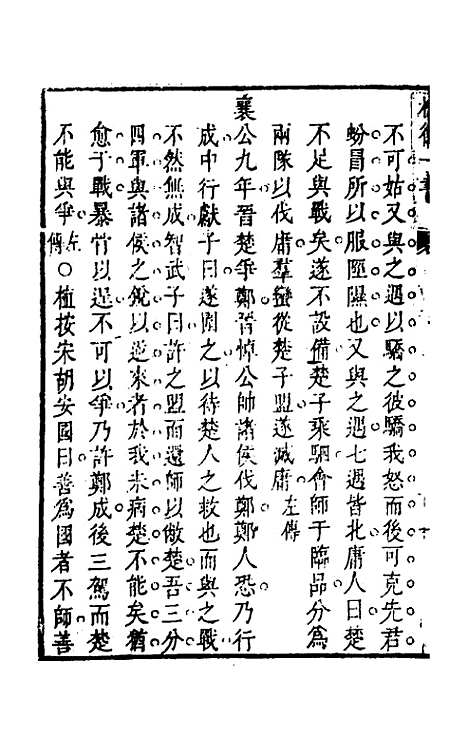 不可姑又與之遇以驕之彼驕我怒而後可克先君
蚡冒所以服陘隰也又與之遇七遇皆北庸人曰楚
不足與戰矣遂不設備楚子乘馹會師于臨品分爲
兩隊以伐庸羣蠻從楚子盟遂滅庸左傳
襄公九年晉楚爭鄭晉悼公師諸侯伐鄭鄭人恐乃行
成中行獻子曰遂圍之以待楚人之救也而與之戰
不然無成智武子曰許之盟而還師以敝楚吾三分
四軍與諸侯之銳以逆來者於我未病楚不能矣猶
愈于戰暴骨以逞不可以爭乃許鄭成後三駕而楚
不能與爭左傳〇植按宋胡安國曰善爲國者不師善